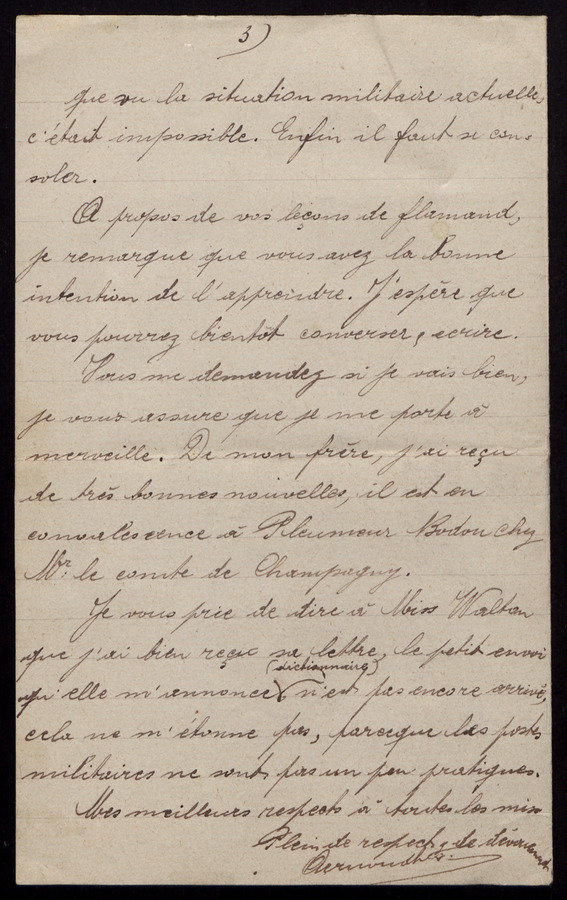 3)
que vu la situation militaire actuelle,
c'était impossible. Enfin il faut se con-
soler.
A propos de vos leçons de flamand,
je remarque que vous avez la bonne
intention de l'apprendre. J'espère que
vous pourrez bientôt converser, ecrire.
Vous me demandez si je vais bien,
je vous assure que je me porte à
merveille. De mon frère, j'ai reçu
de très bonnes nouvelles, il est en
convalescence à Pleumeur Bodou chez
Mr. le comte de Champagny.
Je vous prie de dire à Miss Walton
que j'ai bien reçu sa lettre, le petit envoi
(dictionnaire)
qu'elle m'annonce n'est pas encore arrivé,
cela ne m'étonne pas, parceque les postes
militaires ne sont pas un peu pratiques.
Mes meilleurs respects à toutes les miss
Plein de respect & de dévouement